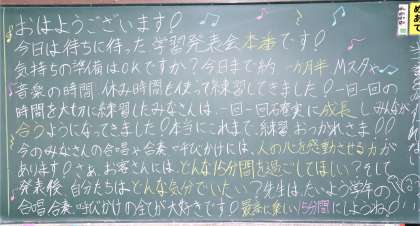 おはようございます!
今日は待ちに待った学習発表会本番です!
気持ちの準備はOKですか?今日まで約一ヶ月半Mスタや
音楽の時間、休み時間も使って練習してきました!一回一回の
時間を大切に練習したみなさんは、一回一回確実に成長し、みんなが
合うようになってきました!本当にこれまで、練習おつかれさま!!
今のみなさんの合唱や合奏、呼びかけには、人の心を感動させる力が
あります!さぁ、お客さんには、どんな15分間を過ごしてほしい?そして
発表後、自分たちはどんな気分でいたい?先生はたいよう学年の
合唱、合奏、呼びかけの全てが大好きです!最高に楽しい15分間にしようね!
めあて